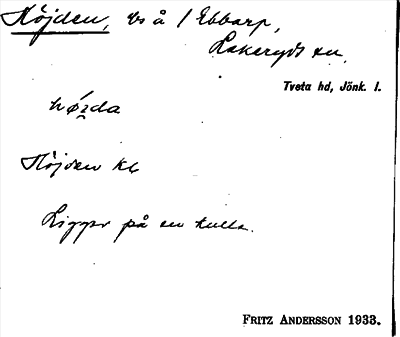 Höjden, vs å 1 Ebbarp,
Lekeryds sn.
Tveta hd, Jönk. l.
Höjden
Ligger på en kulle.
FRITZ ANDERSSON 1933.